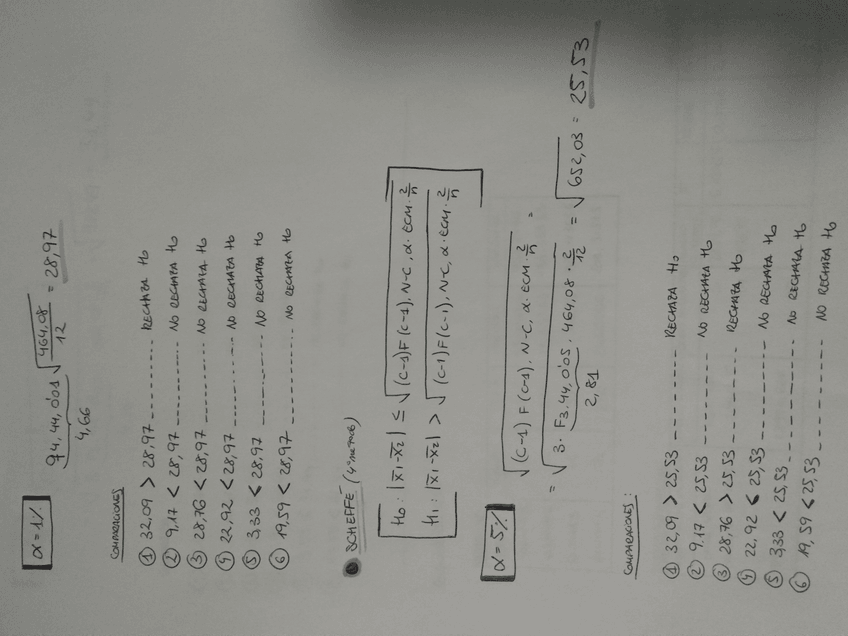 α = 1%
q4,44,0'01 √464,08/12 = 28,97
4,66
COMPARACIONES
① 32,09 > 28,97 --------- RECHAZA H₀
② 9,17 < 28,97 --------- NO RECHAZA H₀
③ 28,76 < 28,97 --------- NO RECHAZA H₀
④ 22,92 < 28,97 --------- NO RECHAZA H₀
⑤ 3,33 < 28,97 --------- NO RECHAZA H₀
⑥ 19,59 < 28,97 --------- NO RECHAZA H₀
SCHEFFÉ (4º METODO)
H₀ : |x̄1-x̄2| ≤ √(C-1)F(C-1), N-C, α · ECM · 2/n
H₁ : |x̄1-x̄2| > √(C-1)F(C-1), N-C, α · ECM · 2/n
α = 5%
√(C-1) F(C-1), N-C, α · ECM · 2/n =
= √3 · F3,44,0'05 · 464,08 · 2/12 = √652,03 = 25,53
2,81
COMPARACIONES:
① 32,09 > 25,53 --------- RECHAZA H₀
② 9,17 < 25,53 --------- NO RECHAZA H₀
③ 28,76 > 25,53 --------- RECHAZA H₀
④ 22,92 < 25,53 --------- NO RECHAZA H₀
⑤ 3,33 < 25,53 --------- NO RECHAZA H₀
⑥ 19,59 < 25,53 --------- NO RECHAZA H₀